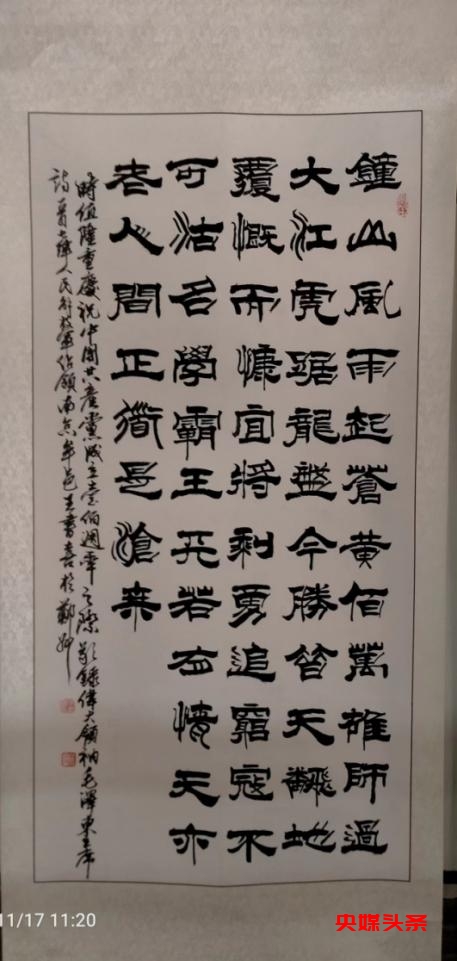 鍾山風雨起蒼黄佰萬雄師過
大江虎踞龍盤今勝昔天飜地
覆慨而慷宜將剩勇追窮寇不
可沽名學霸王天若有情天亦
老人間正道是滄桒
時值隆重慶祝中國共產黨成立壹佰週年之際敬錄偉大領袖毛澤東主席
詩一首七律人民解放軍佔領南京牟邑王書喜於鄭州
11/17 11:20
央媒头条